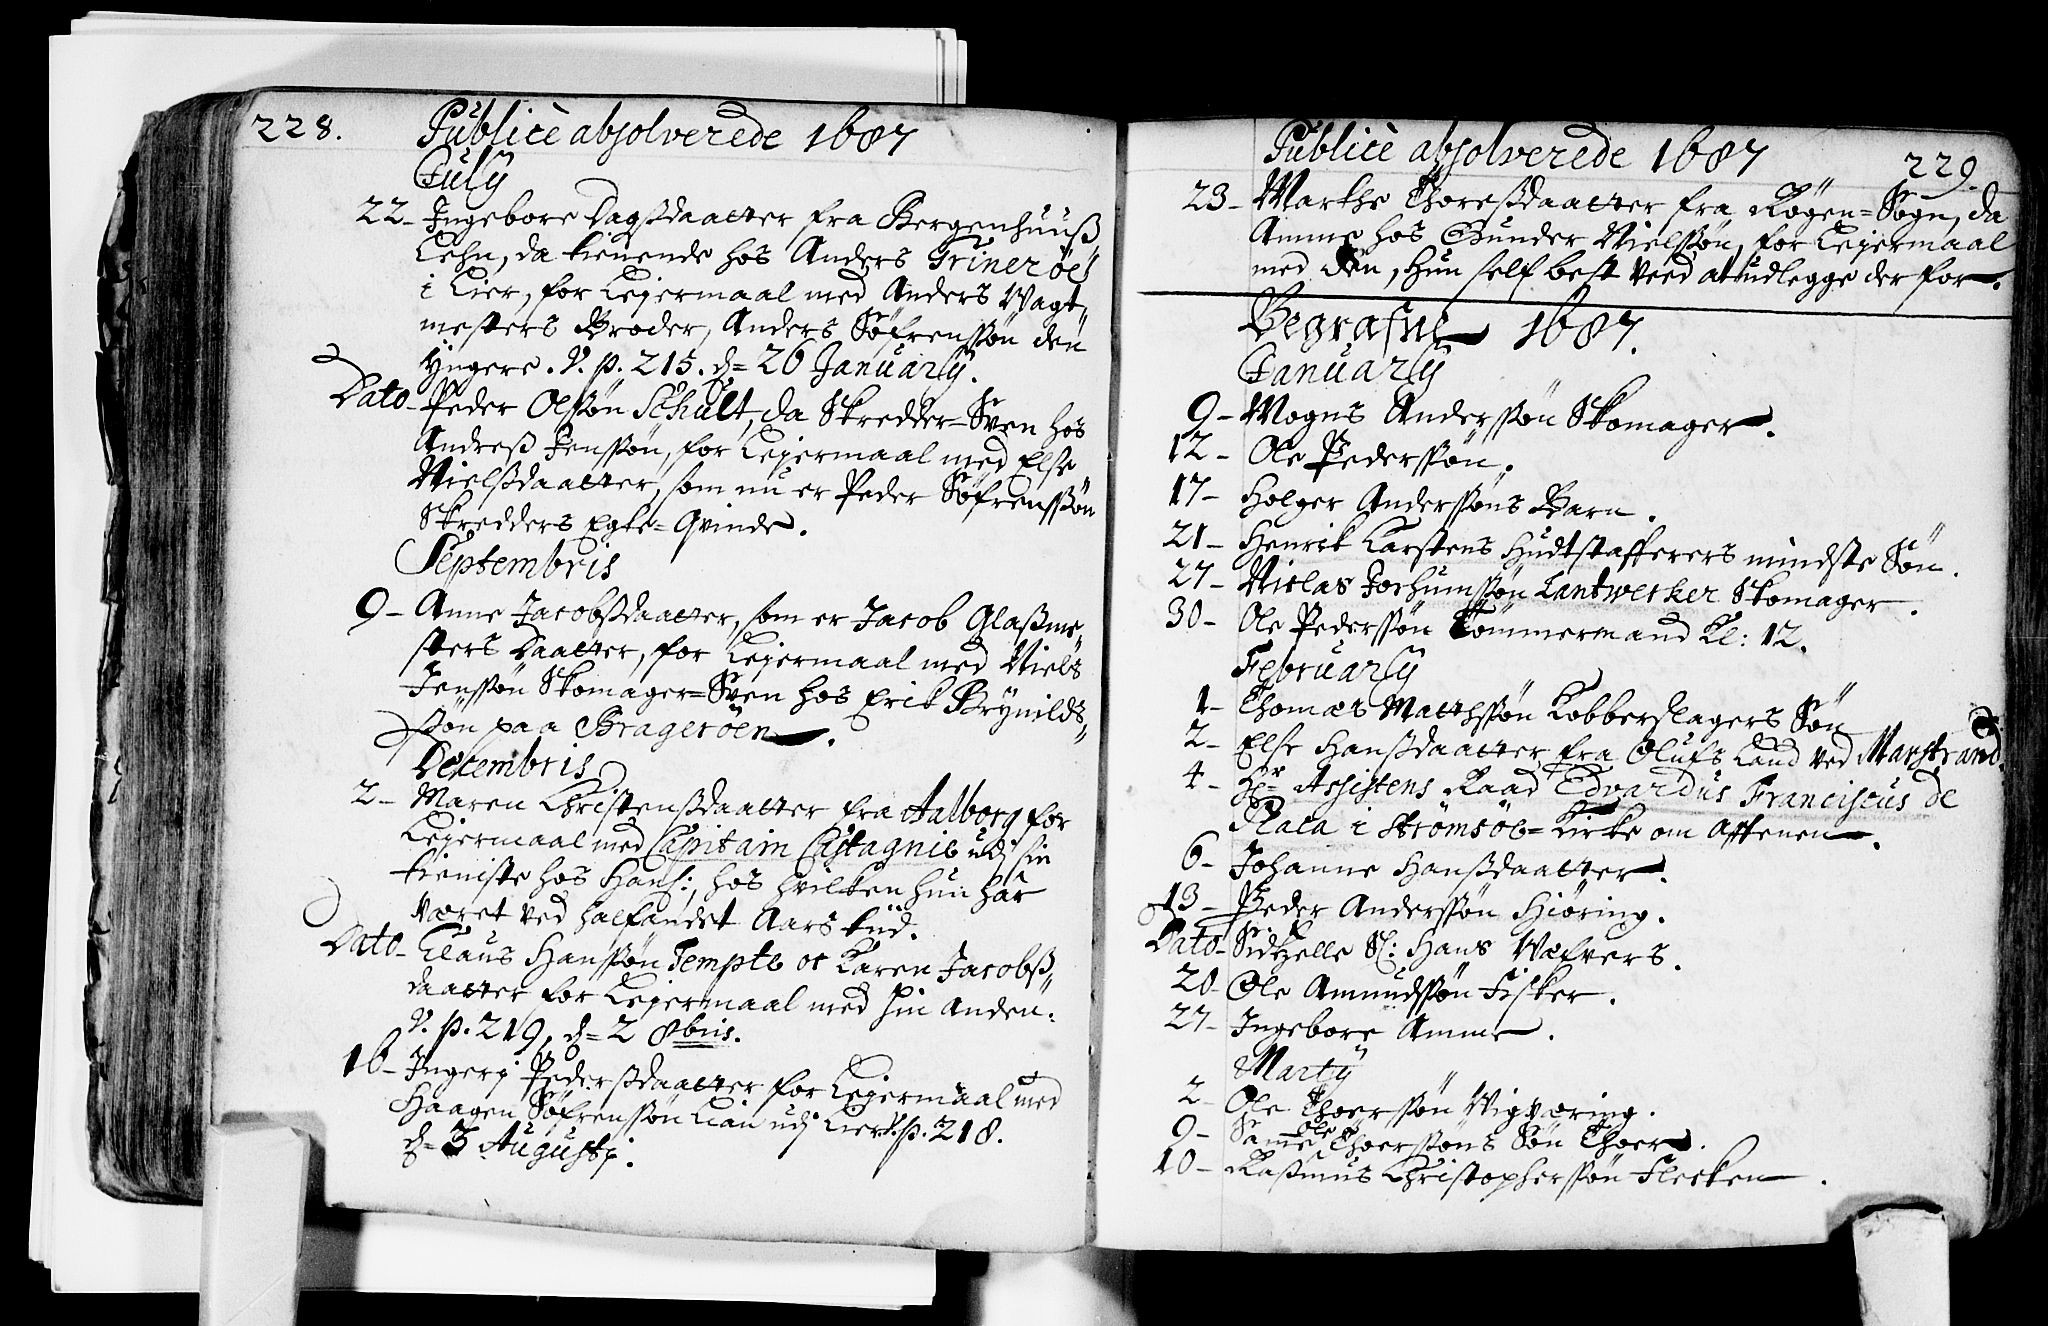 228.
Publicè absolverede 1687
July
22 - Ingebore Dagsdaatter fra Bergenhuuß
Lehn, da tienende hos Anders
i Lier, for Lejermaal med Anders Vagt
mesters Broder, Anders Søfrensøn den
Yngere. V. p. 215. d= 26 January.
Dato - Peder Olssøn Schult, da Skredder=Sven hos
Andreß Jenssøn, for Lejermaal med Else
Nielsdaatter, som nu er Peder Søfrenssøn
Skredders Egte=Qvinde.
Septembris
9 - Anne Jacobsdaatter, som er Jacob Glaßme,,
sters Daatter, for Lejermaal med Niels
Jenssøn Skomager=Sven hos Erik Brynilds,,
søn paa Bragerøen.
Decembris
2 - Maren Christensdaatter fra Aalborg for
Lejermaal med Capitain Castagnie udj sin
tieniste hos Hans:, hos hvilken hun har
været ved halfandet Aars tiid.
Dato - Claus Hanssøn Tempte oc Karen Jacobß,,
daatter for Lejermaal med hin anden.
V. p. 219, d= 2 8bris.
16 - Ingerj Pedersdaatter for Lejermaal med
Haagen Søfrenssøn Lian udj Lier V. p. 218.
d= 3 Augustj.
Publicè absolverede 1687
229.
23 - Marthe Thoresdaatter fra Røgen=Sogn, da
Amme hos Gunder Nielssøn, for Lejermaal
med den, Hun self best veed at udlegge der for.
Begrafne 1687.
January
9 - Mogns Anderssøn Skomager.
12 - Ole Pederssøn.
17 - Holger Anderssøns Barn.
21 - Henrik Karstens Hudtstafferers mindste Søn.
27 - Niclas Jochumssøn Lantwerker Skomager.
30 - Ole Pederssøn Tømmermand Kl: 12.
February
1 - Thomæs Matthssøn Kobberslagers Søn
2 - Else Hansdaatter fra Olufs Land ved Marstrand.
4 - Hr Assistens Raad Edvardus Franciscus de
i Strømsøe=Kirke om Aftenen.
6 - Johanne Hansdaatter.
13 - Peder Anderssøn Hiøring.
Dato - Sidzelle Sl: Hans Væfvers.
20 - Ole Amundssøn Fisker.
27 - Ingebore Amme.
Marty
2 - Ole Thoerssøn Vigværing.
9 - Samme Ole Thoerssøns Søn Thoer.
10 - Rasmus Christopherssøn Flecken.